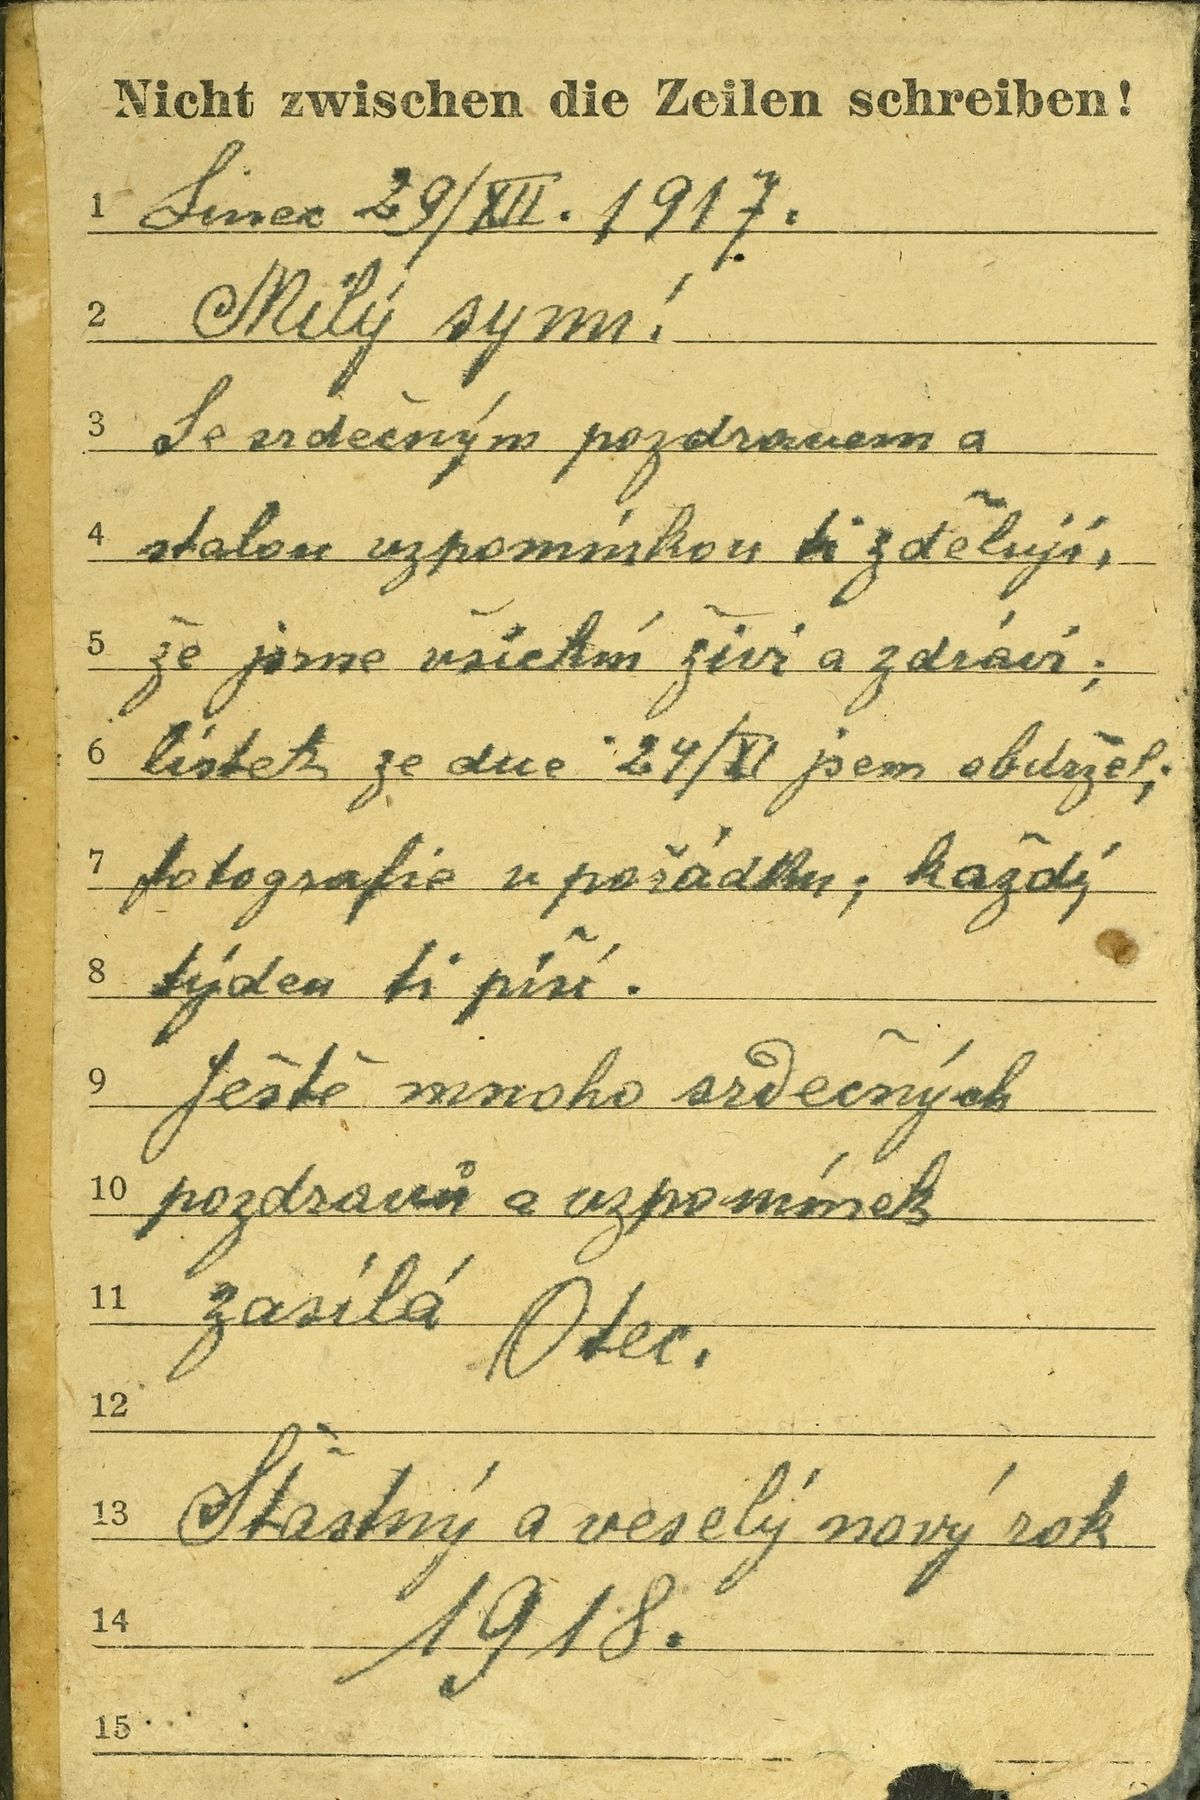 Nicht zwischen die Zeilen schreiben!
1 Linec 29/XII. 1917.
2 Milý synu!
3 Se srdečným pozdravem a
4 stalou vzpomínkou ti zděluji,
5 že jsme všichni živi a zdrávi;
6 lístek ze dne 24/XI jsem obdržel;
7 fotografie v pořádku; každý
8 týden ti píši.
9 Ještě mnoho srdečných
10 pozdravů a vzpomínek
11 zasílá Otec.
12
13 Štastný a veselý nový rok
14 1918.
15